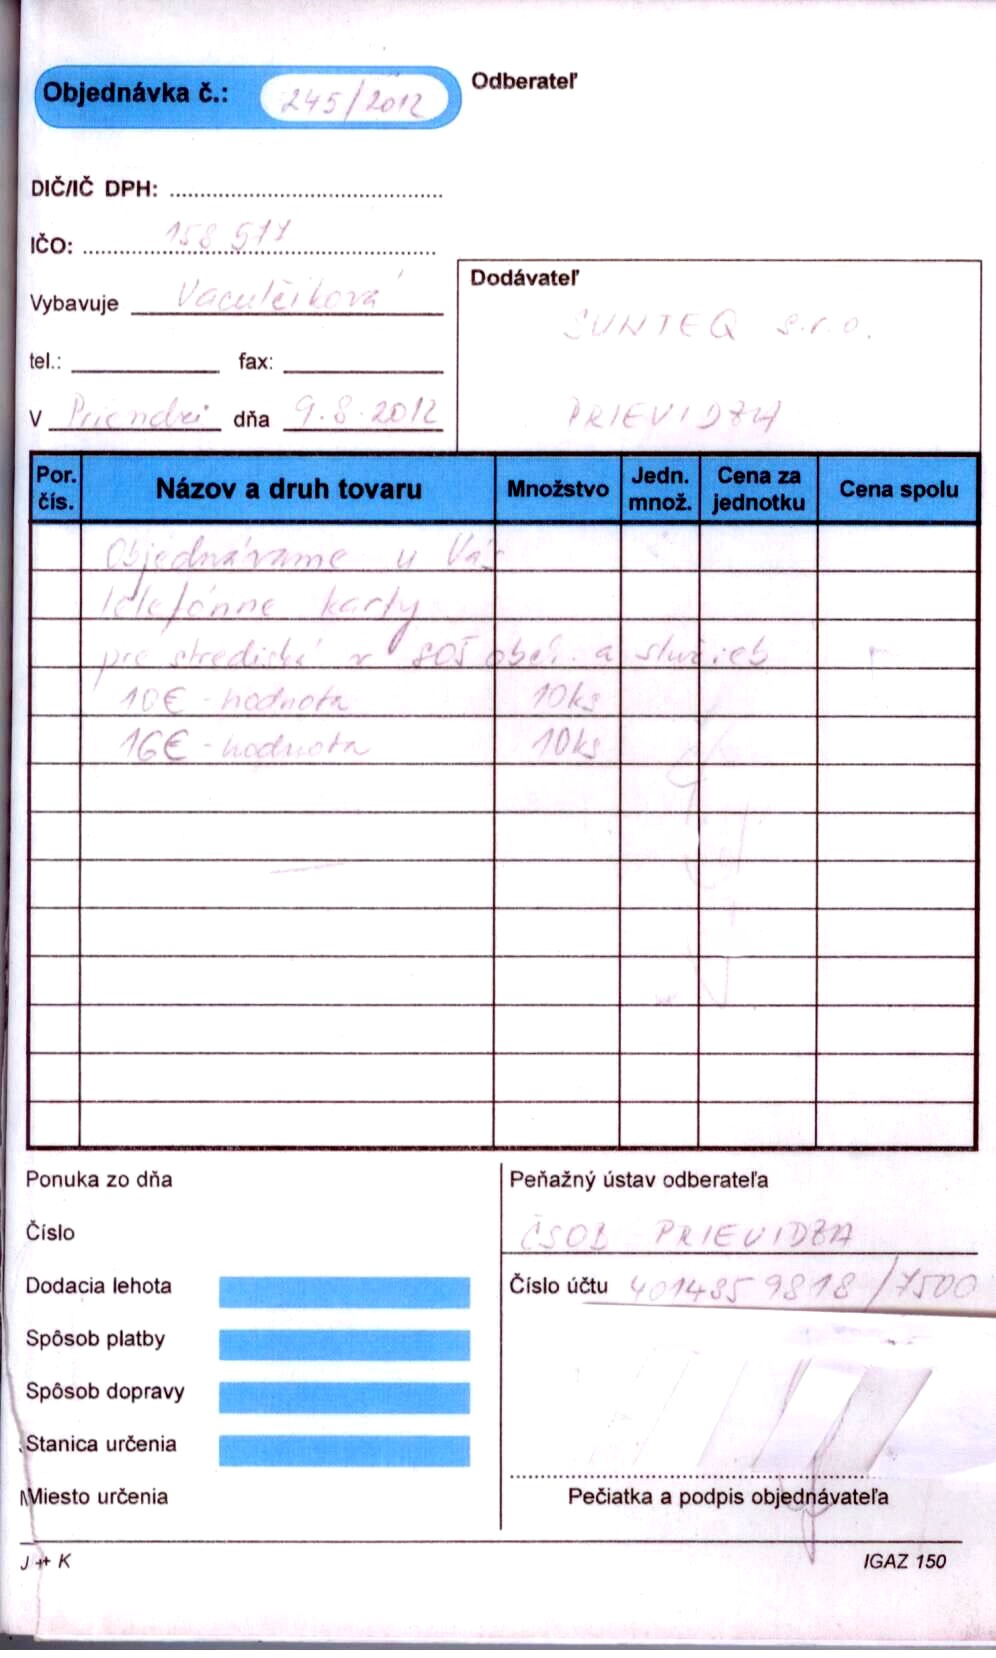 Objednávka č.: 245/2012
Odberateľ
DIČ/IČ DPH:
IČO: 158 577
Vybavuje Vaculčíková
tel.: fax:
V Prievidzi dňa 9.8.2012
Dodávateľ
SUNTEQ s.r.o.
PRIEVIDZA
Por. čís. Názov a druh tovaru Množstvo Jedn. množ. Cena za jednotku Cena spolu
Objednávame u Vás
telefónne karty
pre strediská v SOŠ obch. a služieb
10€ - hodnota 10ks
16€ - hodnota 10ks
Ponuka zo dňa
Číslo
Dodacia lehota
Spôsob platby
Spôsob dopravy
Stanica určenia
Miesto určenia
Peňažný ústav odberateľa
ČSOB PRIEVIDZA
Číslo účtu 4014859818/7500
Pečiatka a podpis objednávateľa
J + K
IGAZ 150